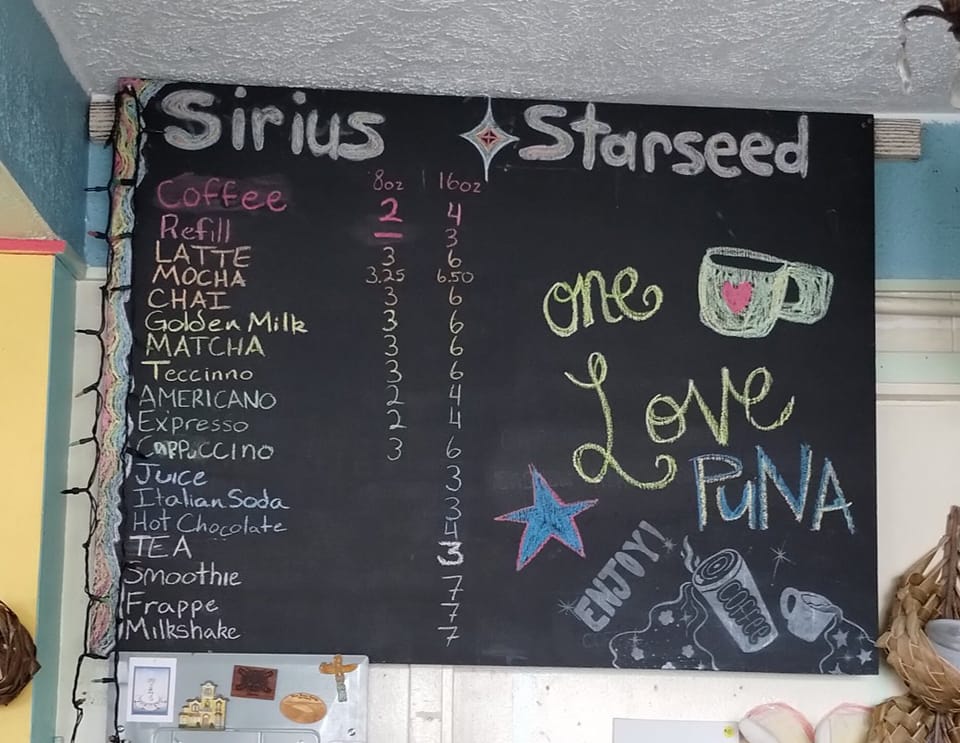 Sirius Starseed
8oz 16oz
Coffee 2 4
Refill — 3
LATTE 3 6
MOCHA 3.25 6.50
CHAI 3 6
Golden Milk 3 6
MATCHA 3 6
Teccinno 3 6
AMERICANO 2 4
Expresso 2 4
Cappuccino 3 6
Juice 3
Italian Soda 3
Hot Chocolate 4
TEA 3
Smoothie 7
Frappe 7
Milkshake 7
one
Love
PuNA
ENJOY!
COFFEE